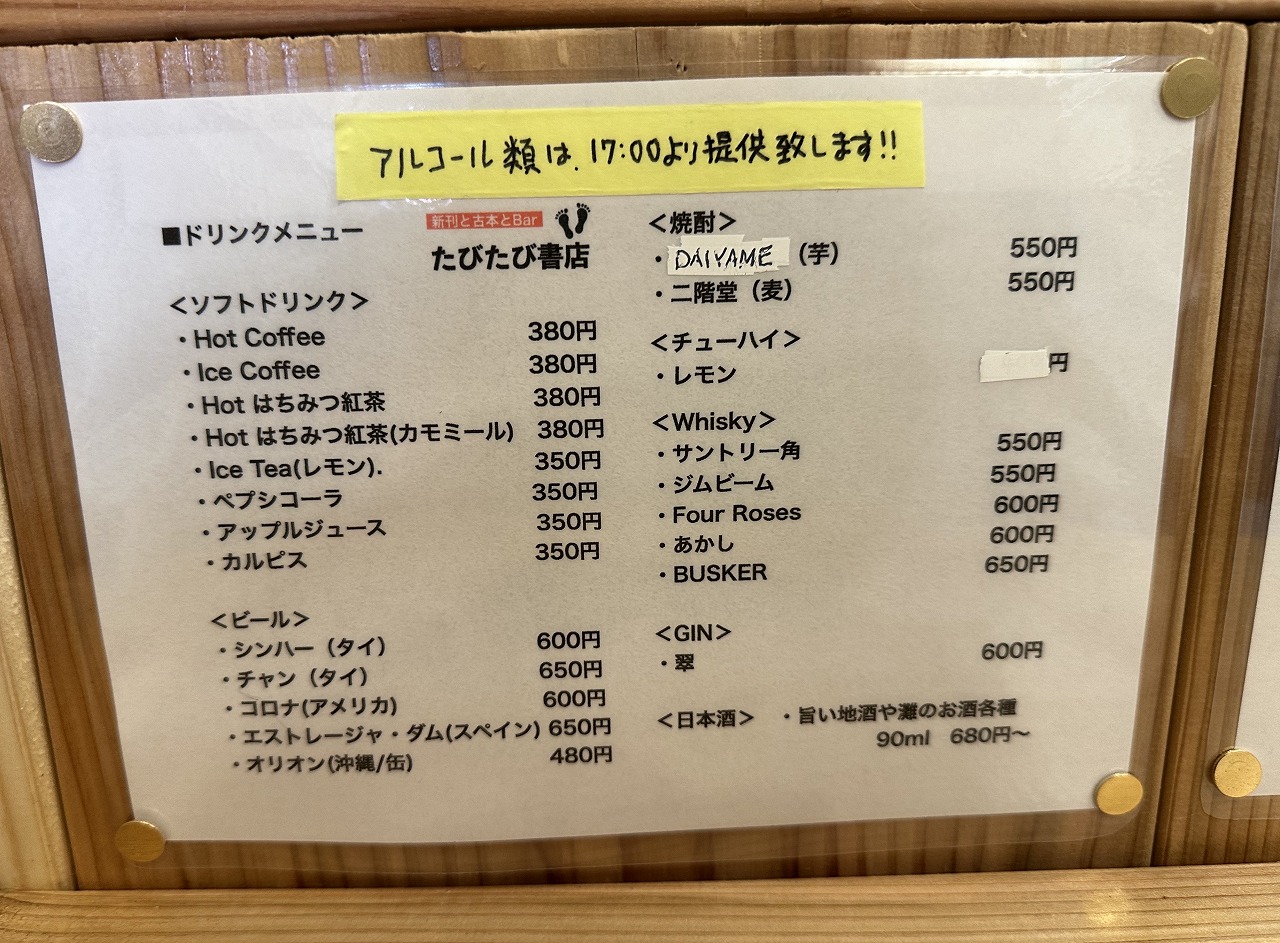 アルコール類は、17:00より提供致します!!
■ドリンクメニュー
新刊と古本とBar
たびたび書店
＜ソフトドリンク＞
・Hot Coffee 380円
・Ice Coffee 380円
・Hot はちみつ紅茶 380円
・Hot はちみつ紅茶(カモミール) 380円
・Ice Tea(レモン). 350円
・ペプシコーラ 350円
・アップルジュース 350円
・カルピス 350円
＜ビール＞
・シンハー（タイ） 600円
・チャン（タイ） 650円
・コロナ(アメリカ) 600円
・エストレージャ・ダム(スペイン) 650円
・オリオン(沖縄/缶) 480円
＜焼酎＞
・DAIYAME（芋） 550円
・二階堂（麦） 550円
＜チューハイ＞
・レモン 円
＜Whisky＞
・サントリー角 550円
・ジムビーム 550円
・Four Roses 600円
・あかし 600円
・BUSKER 650円
＜GIN＞
・翠 600円
＜日本酒＞ ・旨い地酒や灘のお酒各種
90ml 680円〜